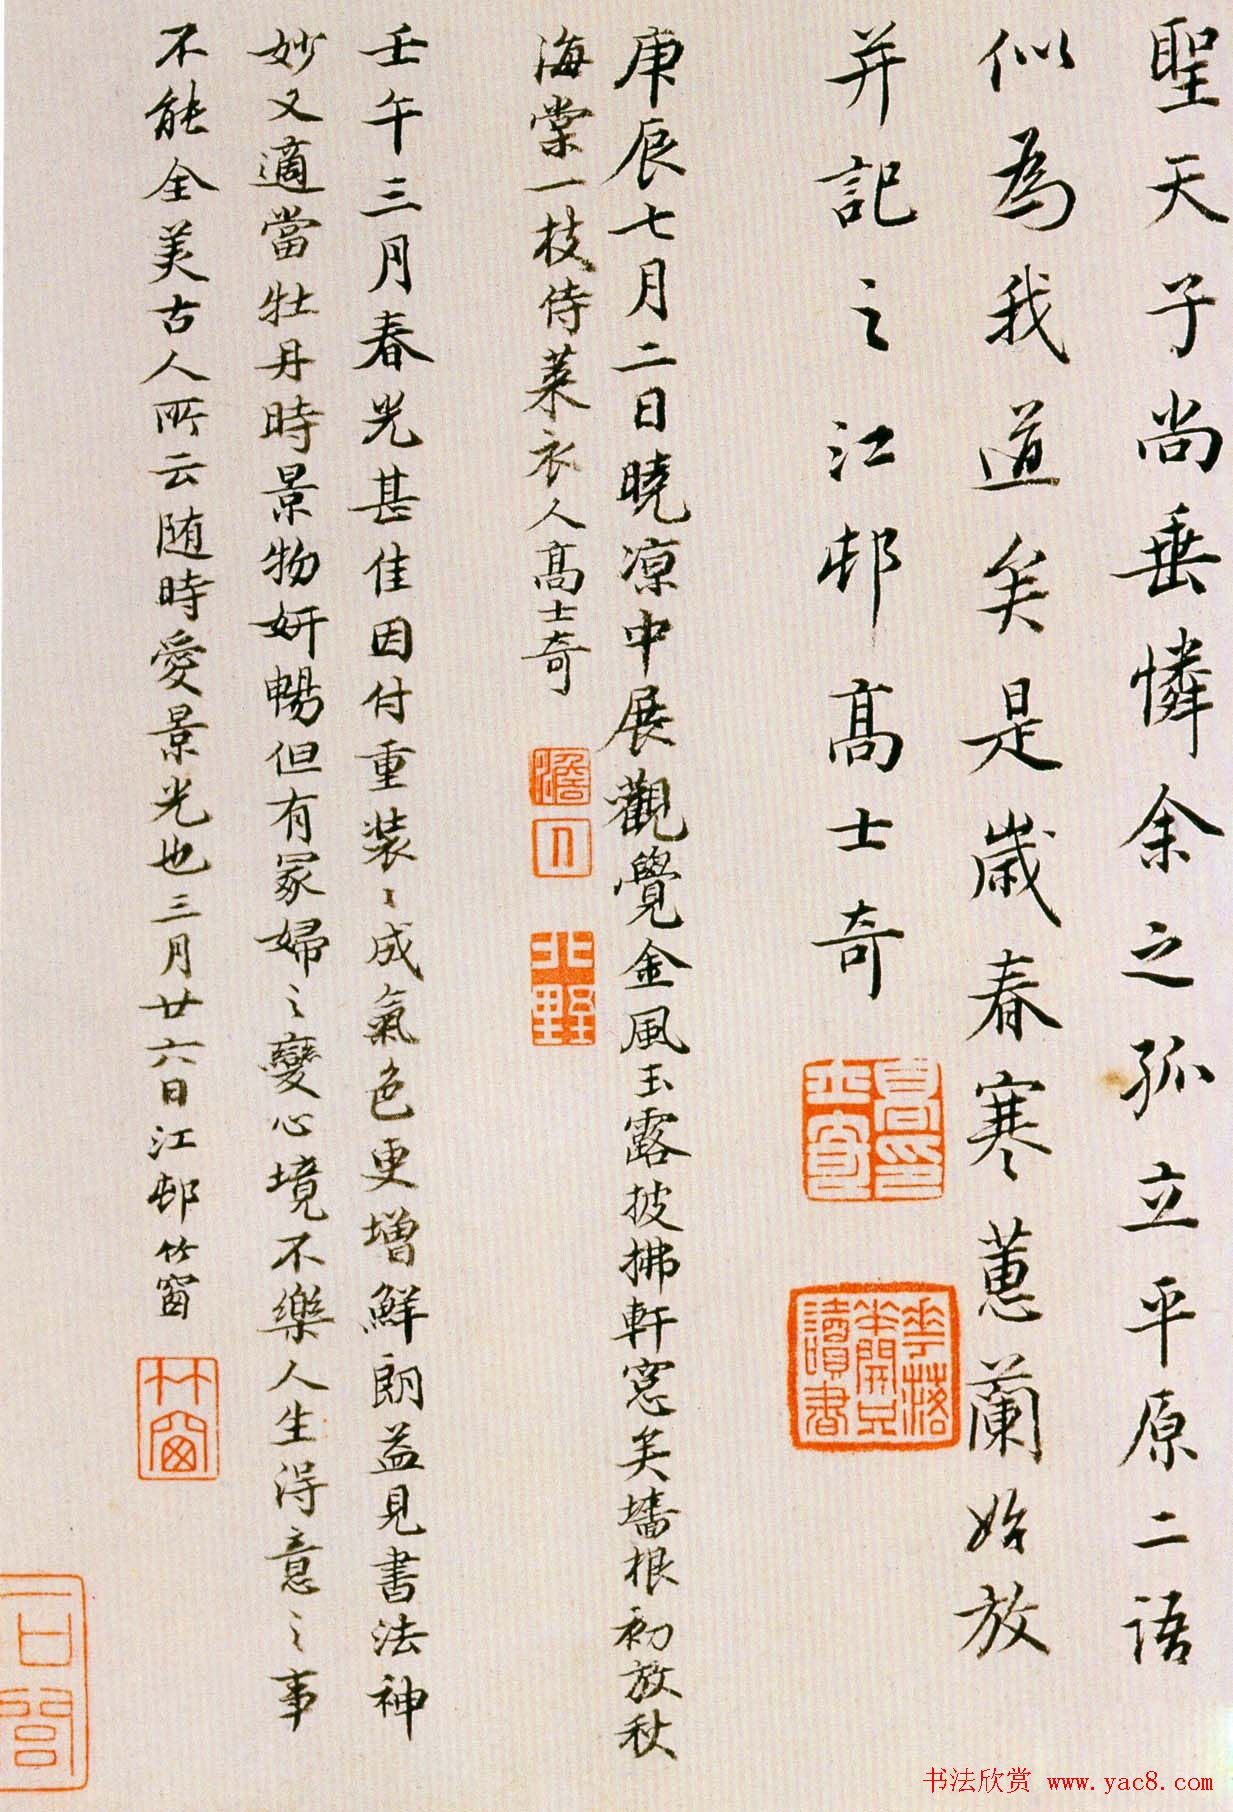 聖天子尚垂憐余之孤立平原二語
似為我道矣是歲春寒蕙蘭始放
并記之江邨高士奇
庚辰七月二日曉涼中展觀覺金風玉露披拂軒窓矣墻根初放秋
海棠一枝侍萊衣人高士奇
壬午三月春光甚佳因付重装〻成氣色更增鮮朗益見書法神
妙又適當牡丹時景物妍暢但有冢婦之變心境不樂人生得意之事
不能全美古人所云随時愛景光也三月廿六日江邨竹窗
高士奇印
花落半開又讀書
澹人
北野
竹窗
书法欣赏 www.yac8.com